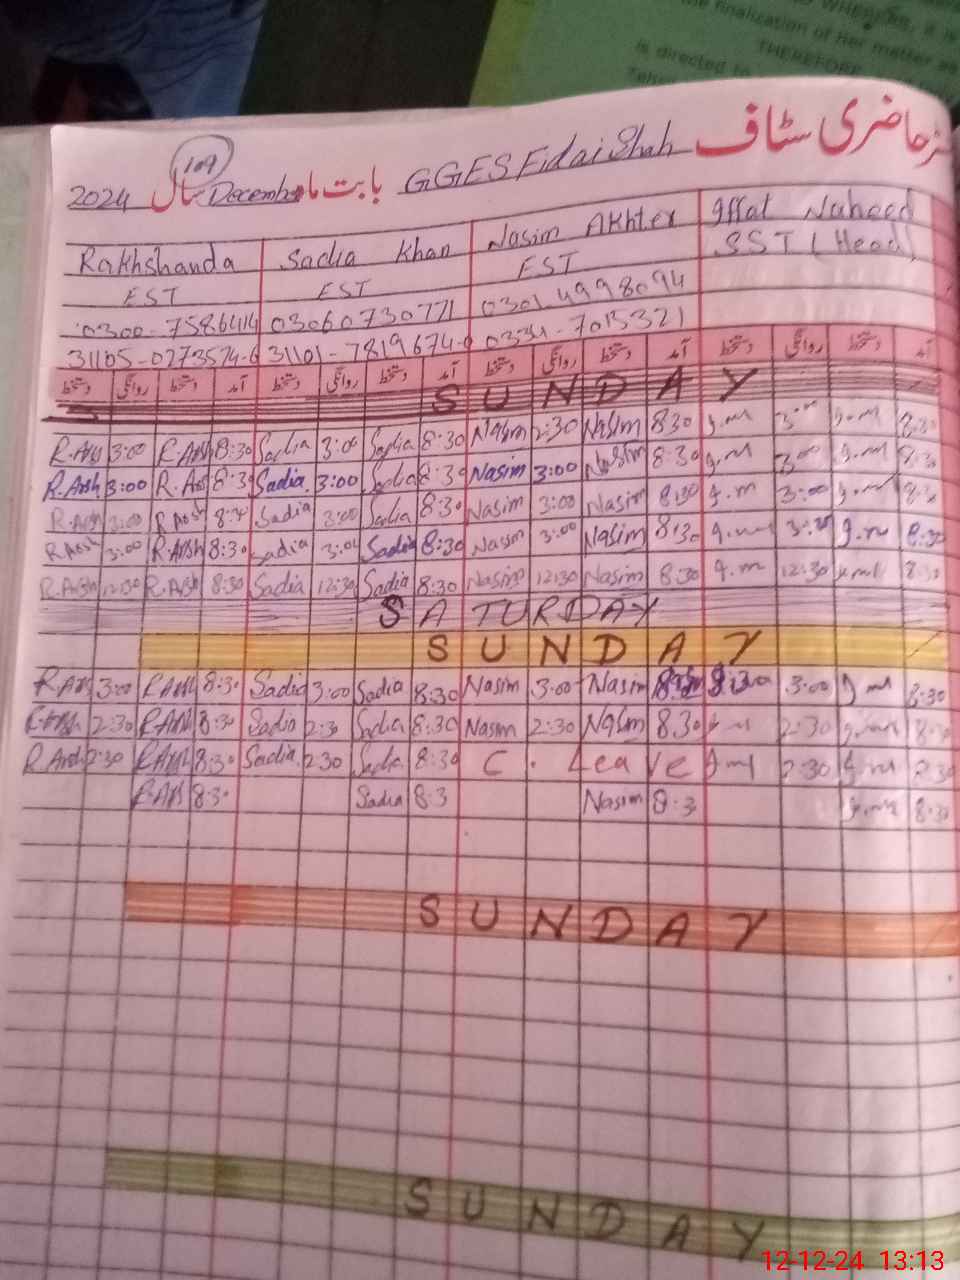 WHEREAS, it is
the finalization of her matter as
THEREFORE
is directed to
حاضری سٹاف GGES Fidai Shah بابت ماہ December سال 2024
109
Rakhshanda Sadia Khan Nasim Akhter Iffat Naheed
EST EST EST SST (Head)
0300-7586414 03060730771 03014998094
31105-0273574-6 31101-7819674-0 0334-7013321
دستخط روانگی دستخط آمد دستخط روانگی دستخط آمد دستخط روانگی دستخط آمد دستخط روانگی دستخط آمد
SUNDAY
R.Arsh 3:00 R.Arsh 8:30 Sadia 3:00 Sadia 8:30 Nasim 2:30 Nasim 8:30 8:30
R.Arsh 3:00 R.Ars 8:30 Sadia 3:00 Sadia 8:30 Nasim 3:00 Nasim 8:30 3:00 8:30
R.Arsh 3:00 R.Arsh 8:30 Sadia 3:00 Sadia 8:30 Nasim 3:00 Nasim 8:30 3:00 8:30
R.Arsh 3:00 R.Arsh 8:30 Sadia 3:00 Sadia 8:30 Nasim 3:00 Nasim 8:30 8:30
R.Arsh 12:30 R.Arsh 8:30 Sadia 12:30 Sadia 8:30 Nasim 12:30 Nasim 8:30 12:30 8:30
SATURDAY
SUNDAY
R.Arsh 3:00 R.Arsh 8:30 Sadia 3:00 Sadia 8:30 Nasim 3:00 Nasim 8:30 3:00 8:30
R.Arsh 2:30 R.Arsh 8:30 Sadia 2:30 Sadia 8:30 Nasim 2:30 Nasim 8:30 2:30 8:30
R.Arsh 2:30 R.Arsh 8:30 Sadia 2:30 Sadia 8:30 C. Leave 2:30
R.Ars 8:30 Sadia 8:3 Nasim 8:3 8:30
SUNDAY
SUNDAY
12-12-24 13:13